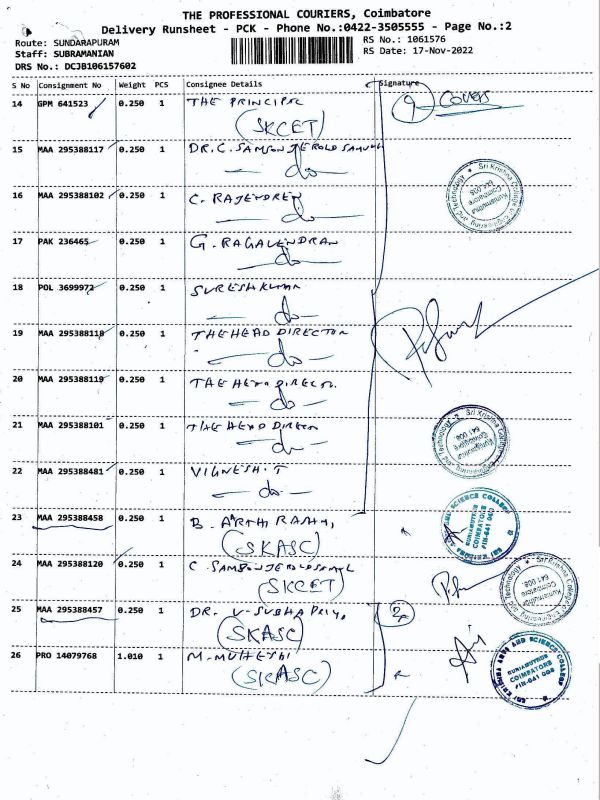 THE PROFESSIONAL COURIERS, Coimbatore
Delivery Runsheet - PCK - Phone No.:0422-3505555 - Page No.:2
Route: SUNDARAPURAM
RS No.: 1061576
Staff: SUBRAMANIAN
RS Date: 17-Nov-2022
DRS No.: DCJB106157602
S No Consignment No Weight PCS Consignee Details Signature
14 GPM 641523 0.250 1 THE PRINCIPAL 9 COVERS
(SKCET)
15 MAA 295388117 0.250 1 DR. C. SAMSON JEROLD SAMUEL
— do —
16 MAA 295388102 0.250 1 C. RAJENDREN
— do —
17 PAK 236465 0.250 1 G. RAGAVENDRAN
— do —
18 POL 3699972 0.250 1 SURESHKUMAR
— do —
19 MAA 295388118 0.250 1 THE HEAD DIRECTOR
— do —
20 MAA 295388119 0.250 1 THE HEAD DIRECTOR
— do —
21 MAA 295388101 0.250 1 THE HEAD DIRECTOR
— do —
22 MAA 295388481 0.250 1 VIGNESH.T
— do —
23 MAA 295388458 0.250 1 B. ARTHI
(SKASC)
24 MAA 295388120 0.250 1 C. SAMSON JEROLD SAMUEL
(SKCET)
25 MAA 295388457 0.250 1 DR. V. SUBHA PRIYA
(SKASC)
26 PRO 14079768 1.010 1 M. MUTHESH
(SKASC)
Sri Krishna College of Engineering and Technology
Kuniamuthur
Coimbatore
641 008
SRI KRISHNA ARTS AND SCIENCE COLLEGE
KUNIAMUTHUR
COIMBATORE
PIN-641 008